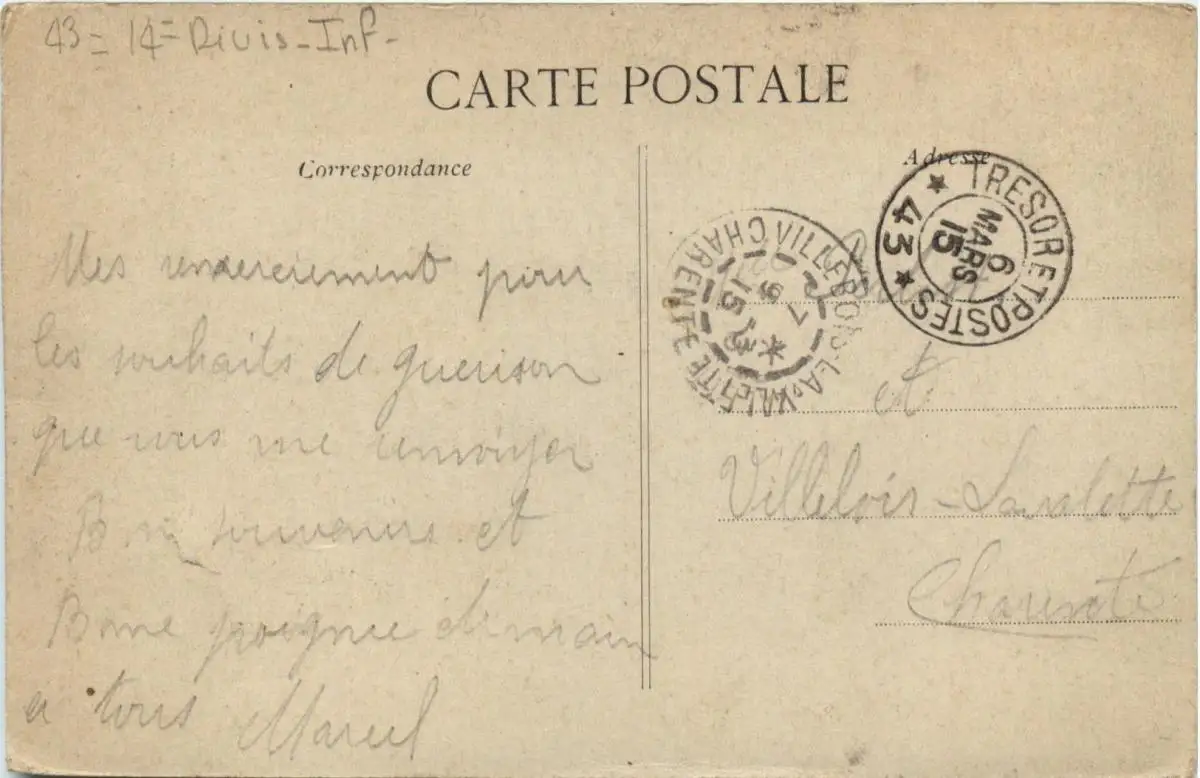 43= 14= Divis-Inf-
CARTE POSTALE
Correspondance
Mes remerciement pour
les souhaits de guerison
que vous me
Bon souvenirs et
Bonne poignee de main
a tous Marcel
Adresse
TRESOR ET POSTES
★ 43 ★
6
MARS
15
VILLEBOIS-LAVALETTE
CHARENTE
7
15
et
Villebois-Lavalette
Charente